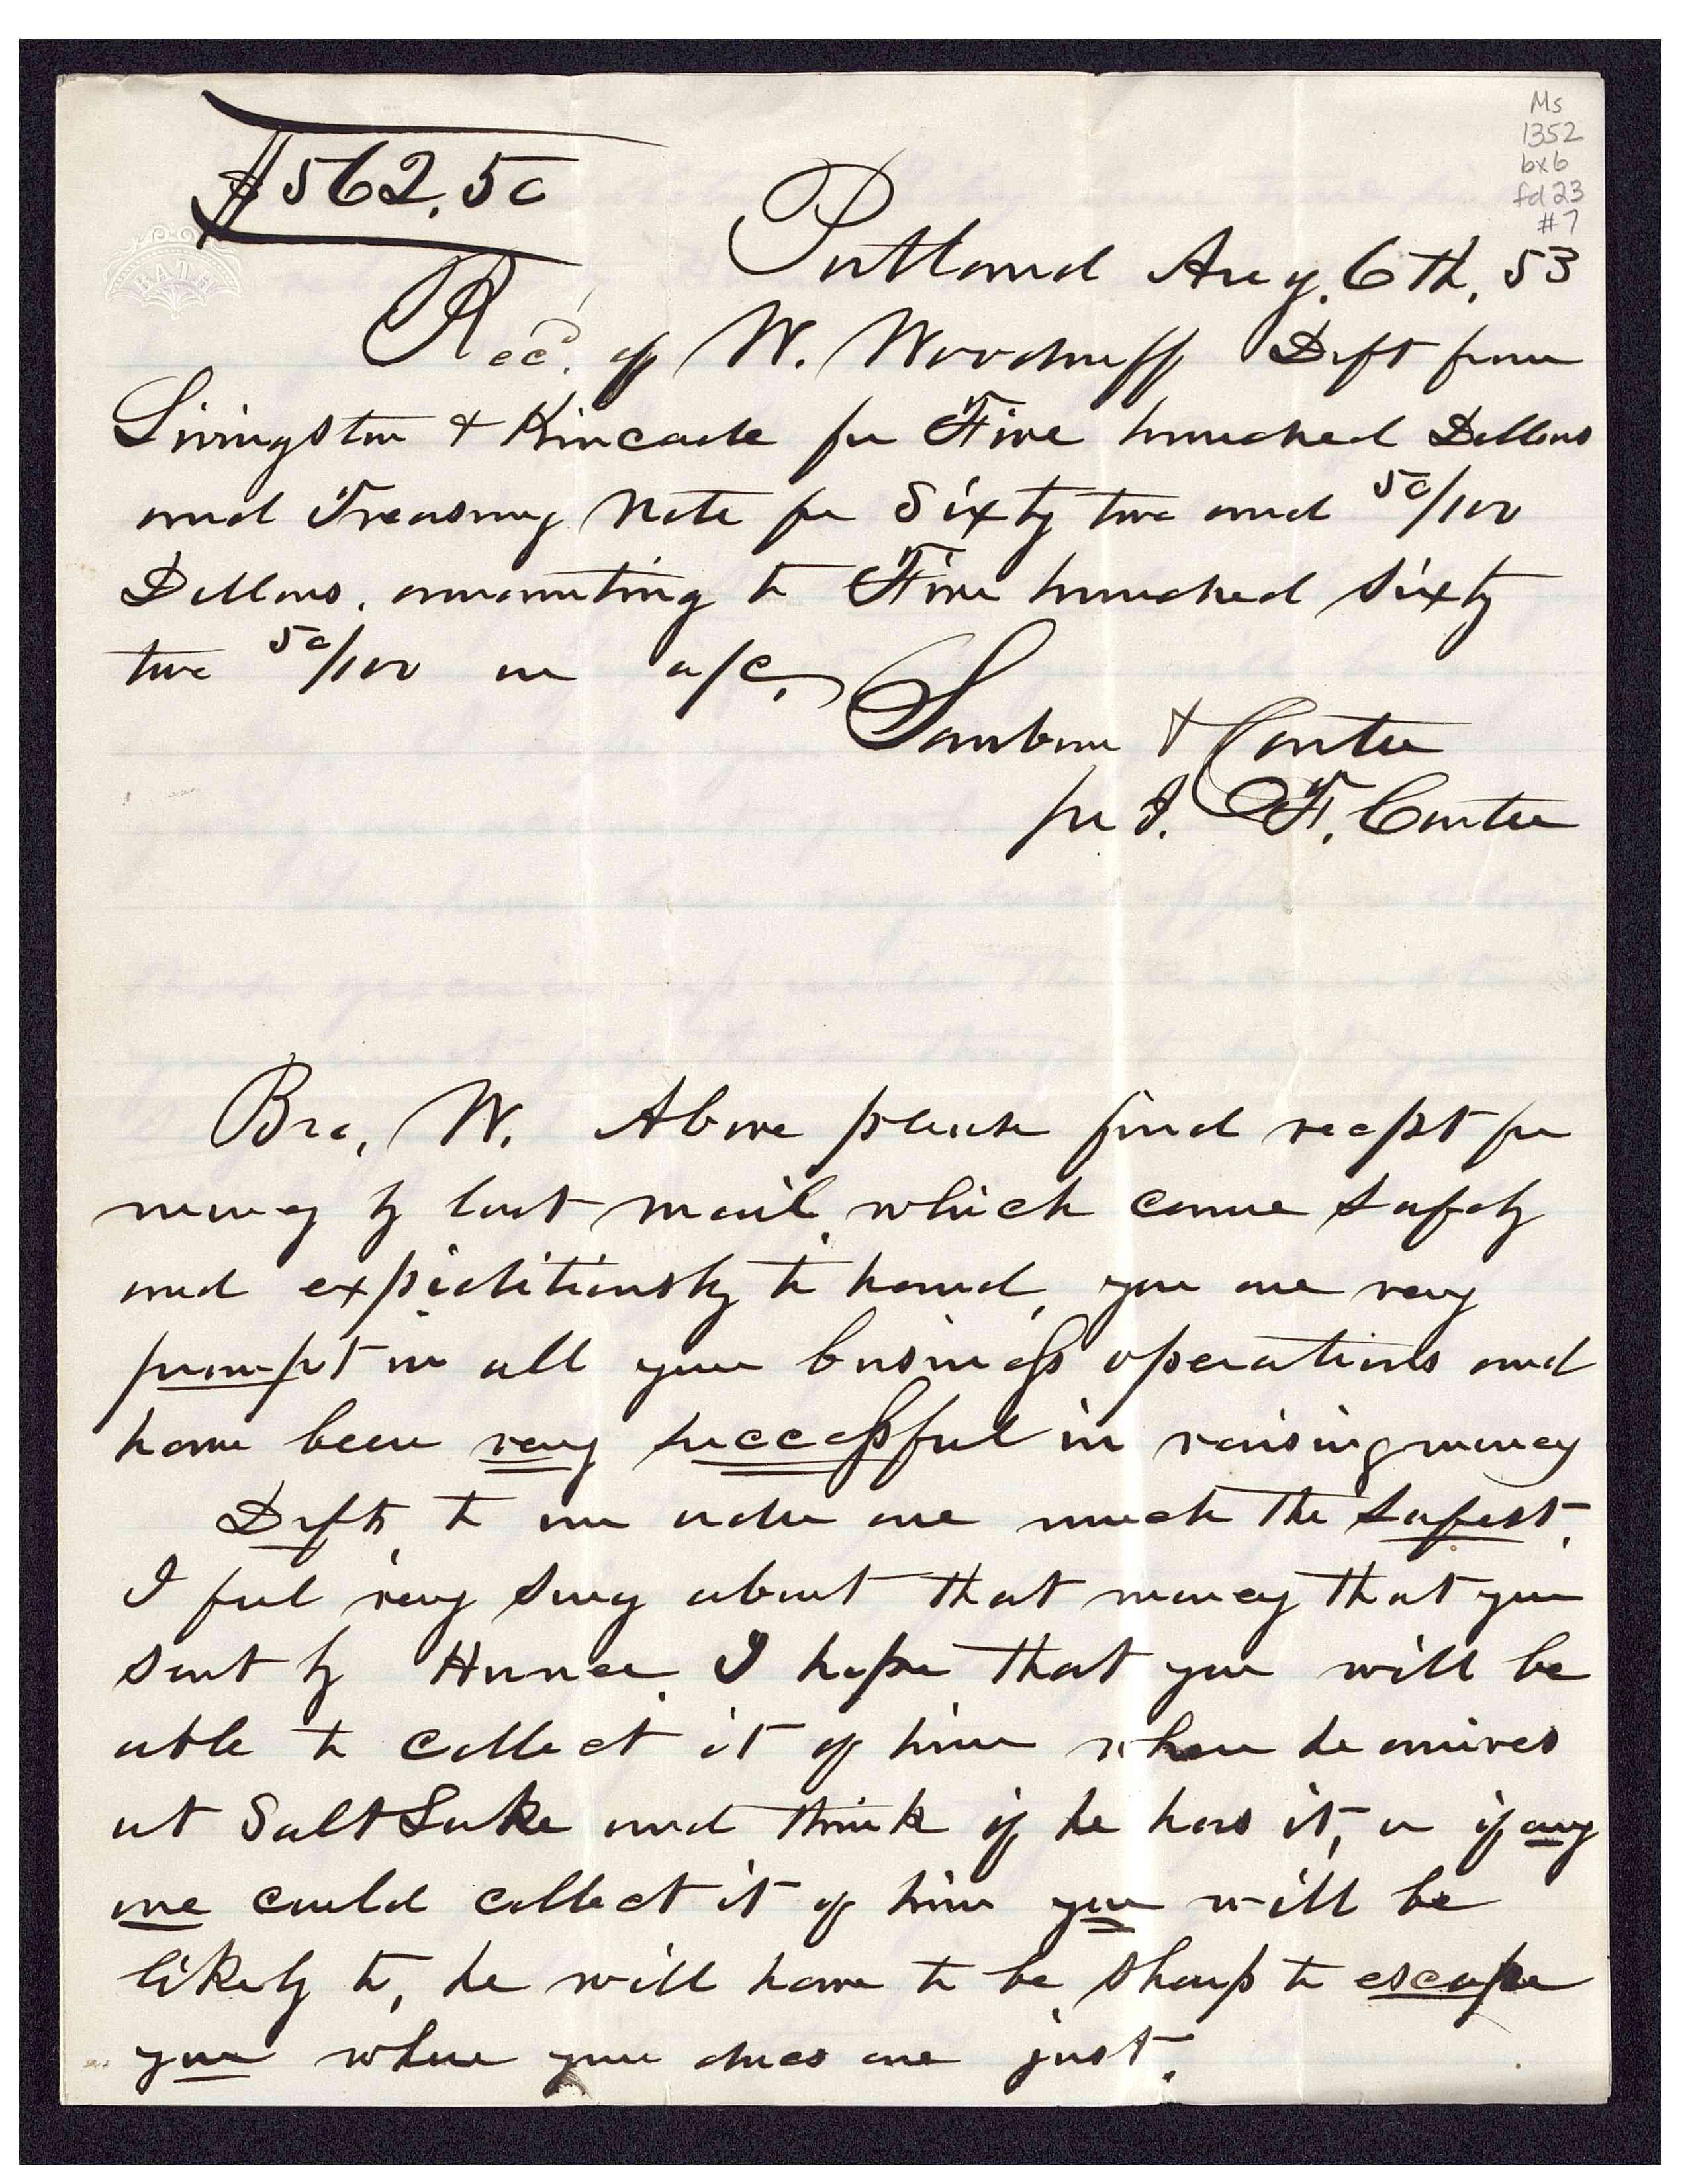 Ms
1352
bx 6
fd 23
#7
$562.50
BATH
Portland Aug. 6th. 53
Recd. of W. Woodruff Dft from
Livingston & Kincade for Five hundred Dollars
and Treasury Note for Sixty two and 50/100
Dollars. amounting to Five hundred sixty
two 50/100 on a/c.
Sanborn & Carter
per I. F. Carter
Bro. W. Above please find recpt for
money by last mail, which came safely
and expiditiously to hand, you are very
prompt in all your business operations and
have been very successful in raising money
Dfts, to our order are much the safest.
I feel very sorry about that money that you
sent by I hope that you will be
able to collect it of him when he arrives
at Salt Lake and think if he has it, or if any
one could collect it of him you will be
likely to, he will have to be sharp to escape
you where your dues are just.